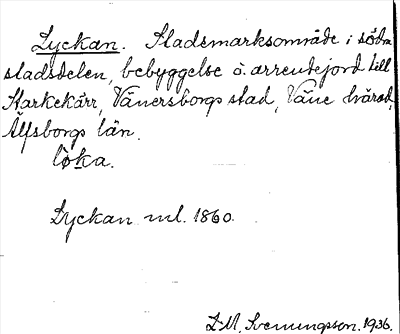 Lyckan. Stadsmarksområde i södra
stadsdelen, bebyggelse o. arrendejord till
Starkekärr, Vänersborgs stad, Väne härad,
Älfsborgs län.
lồka.
Lyckan ml. 1860.
L-M. Svenungsson. 1936.